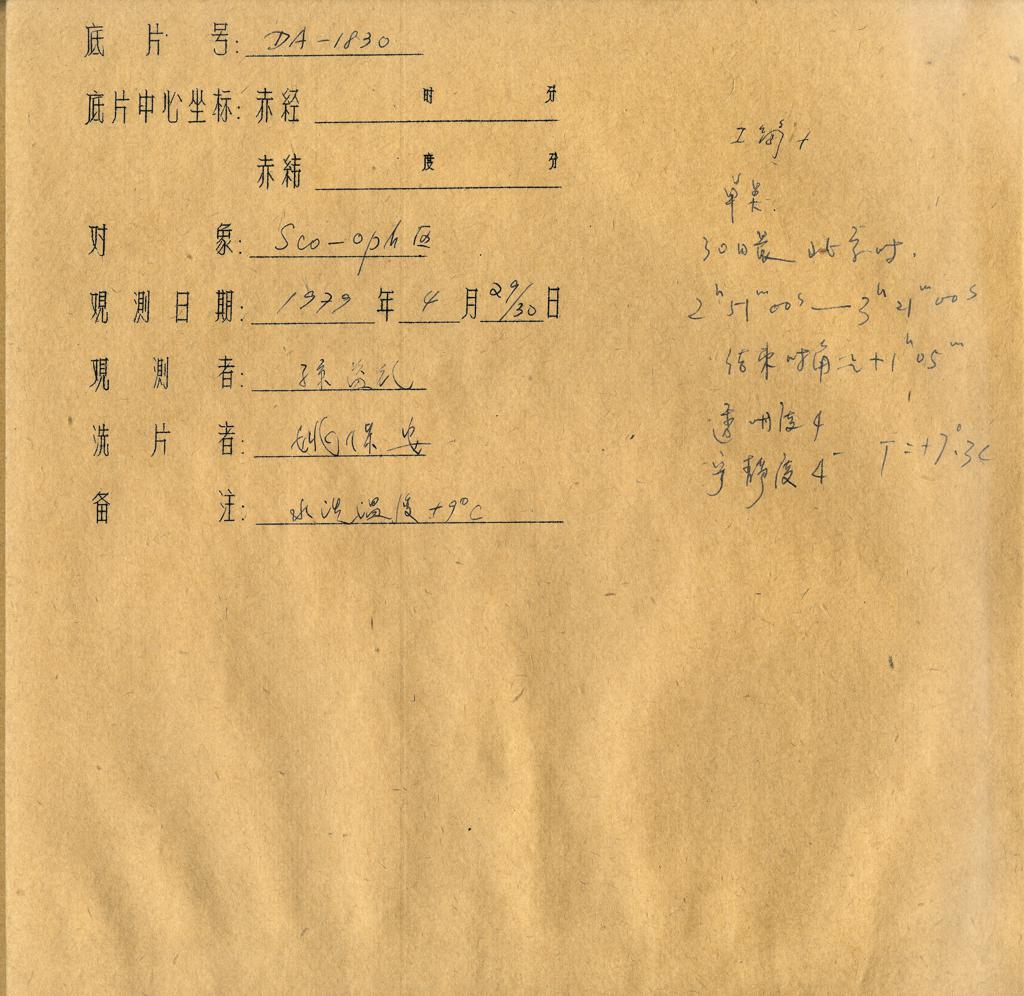 底片号: DA-1830
底片中心坐标: 赤经 时 分
赤纬 度 分
对象: Sco-oph 区
观测日期: 1979年4月29/30日
观测者:
洗片者: 姚保安
备注: 水洗温度+9°C
单类.
30日晨 北京时.
2ʰ51ᵐ00ˢ—3ʰ21ᵐ00ˢ
结束时角=+1ʰ05ᵐ
透明度 4
宁静度 4⁻ T=+7°.3C